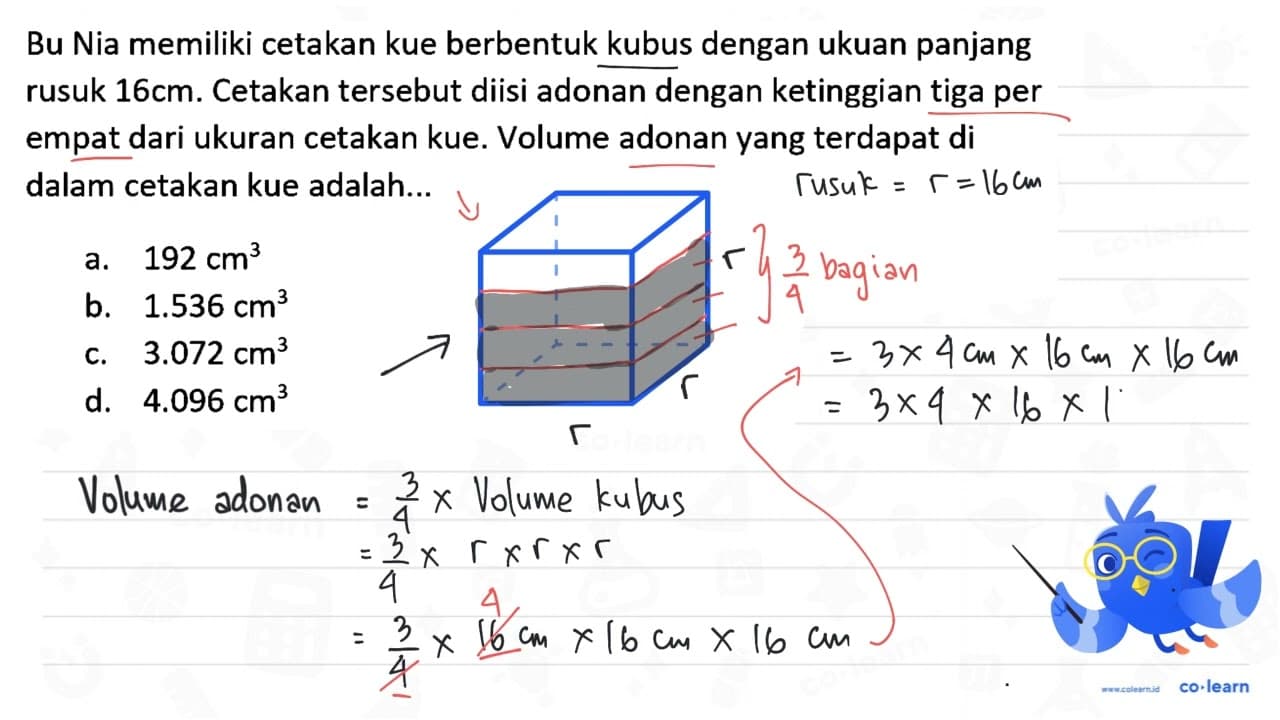 Bu Nia memiliki cetakan kue berbentuk kubus dengan ukuan panjang
rusuk 16cm. Cetakan tersebut diisi adonan dengan ketinggian tiga per
empat dari ukuran cetakan kue. Volume adonan yang terdapat di
dalam cetakan kue adalah...
rusuk = r = 16 cm
a. 192 cm³
b. 1.536 cm³
c. 3.072 cm³
d. 4.096 cm³
r
3/4 bagian
r
r
= 3 × 4 cm × 16 cm × 16 cm
= 3 × 4 × 16 × 1
Volume adonan = 3/4 × Volume kubus
= 3/4 × r × r × r
4
= 3/4 × 16 cm × 16 cm × 16 cm
www.colearn.id co·learn